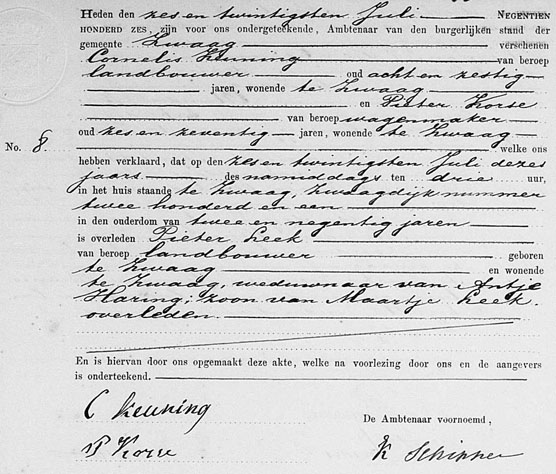 Heden den zes en twintigsten Juli NEGENTIEN
HONDERD ZES, zijn voor ons ondergeteekende, Ambtenaar van den burgerlijken stand der
gemeente Zwaag verschenen
Cornelis Keuning van beroep
landbouwer oud acht en zestig
jaren, wonende te Zwaag
en Pieter Korse
van beroep wagenmaker
oud zes en zeventig jaren, wonende te Zwaag
No. 8. welke ons
hebben verklaard, dat op den zes en twintigsten Juli dezes
jaars des namiddags ten drie uur,
in het huis staande te Zwaag, Zwaagdijk nummer
twee honderd en een
in den ouderdom van twee en negentig jaren
is overleden Pieter Leek
van beroep landbouwer geboren
te Zwaag en wonende
te Zwaag, weduwnaar van Antje
Haring; zoon van Maartje Leek,
overleden.
En is hiervan door ons opgemaakt deze akte, welke na voorlezing door ons en de aangevers
is onderteekend.
C Keuning
De Ambtenaar voornoemd,
P Korse
K Schipper